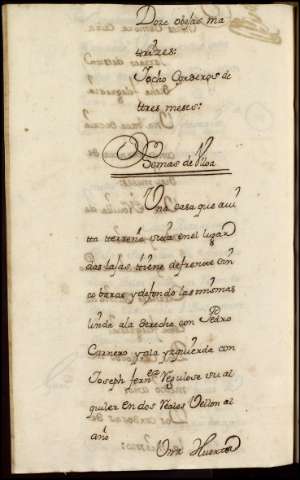 Doze obejas ma
trizes:
Iocho Corderos de
tres meses:
Bienes de Ulloa
Una casa que avi
ta terrena sita en el lugar
dos lajas tiene de frente cin
co baras y de fondo las mismas
linda ala derecha con Pedro
Carnero y ala yzquierda con
Joseph fern.ez Regulose su al
quiler en dos reales Vellon al
año
Una Huerta